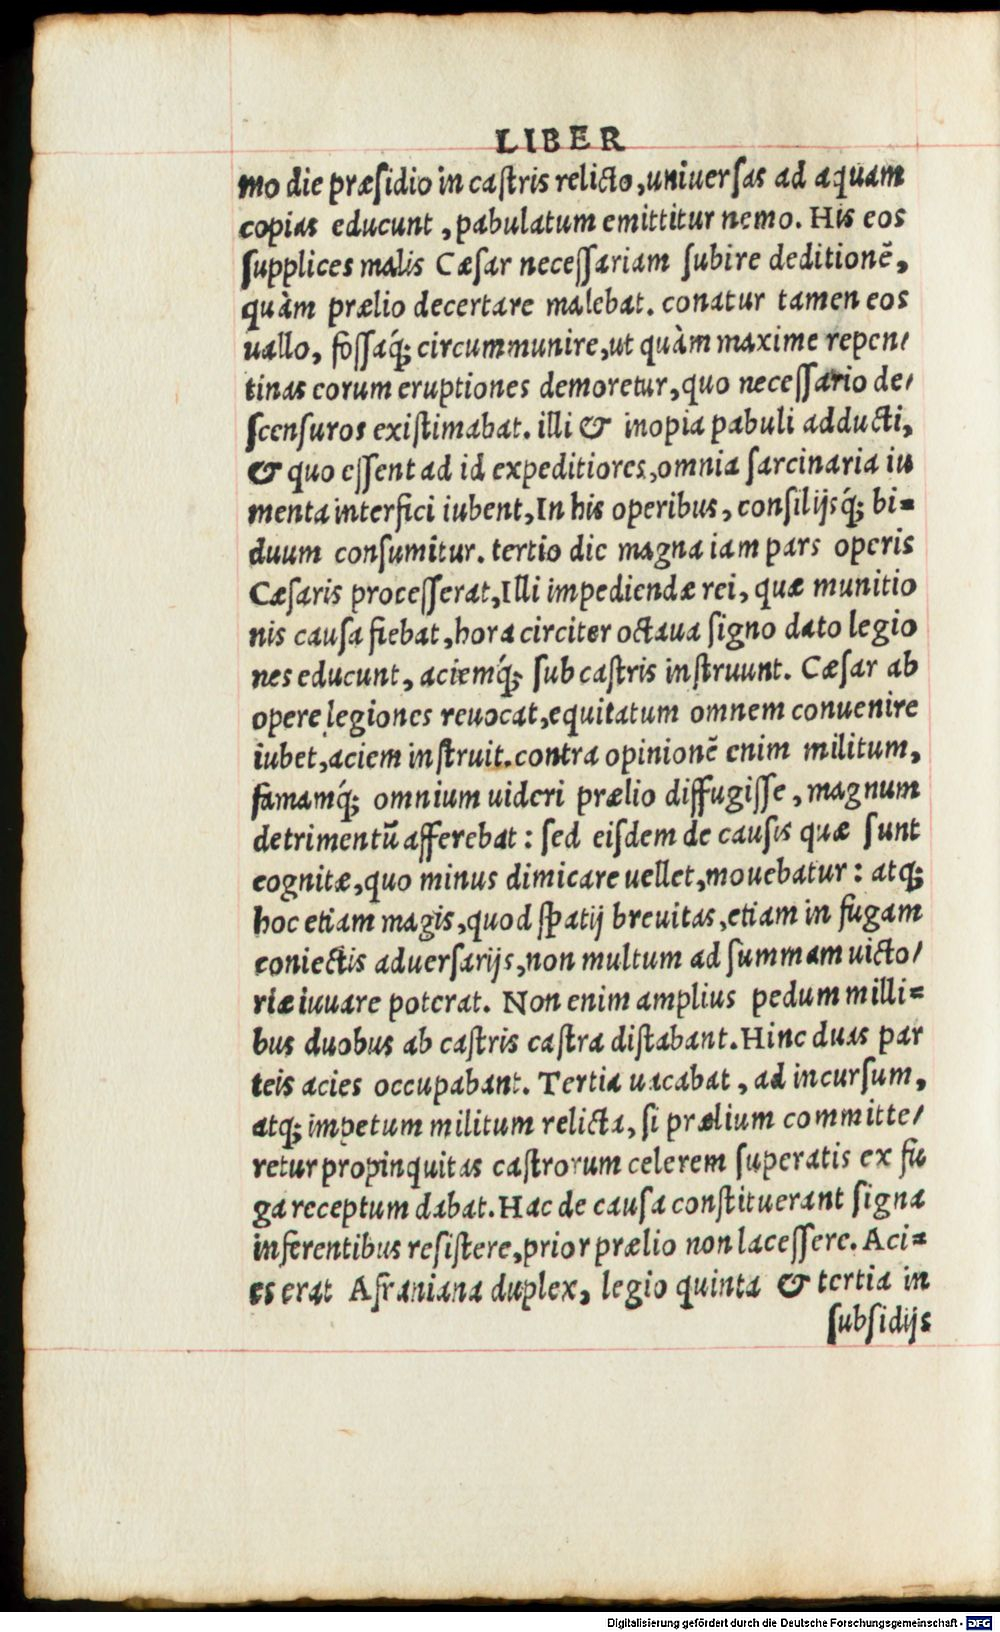 LIBER
mo die præſidio in caſtris relicto, uniuerſas ad aquam
copias educunt, pabulatum emittitur nemo. His eos
ſupplices malis Cæſar neceſſariam ſubire deditionē,
quàm prælio decertare malebat. conatur tamen eos
uallo, foſſaq́; circummunire, ut quàm maxime repen/
tinas eorum eruptiones demoretur, quo neceſſario de/
ſcenſuros exiſtimabat. illi & inopia pabuli adducti,
& quo eſſent ad id expeditiores, omnia ſarcinaria iu
menta interfici iubent, In his operibus, conſilijsq́; bi=
duum conſumitur. tertio die magna iam pars operis
Cæſaris proceſſerat, Illi impediendæ rei, quæ munitio
nis cauſa fiebat, hora circiter octaua ſigno dato legio
nes educunt, aciemq́; ſub caſtris inſtruunt. Cæſar ab
opere legiones reuocat, equitatum omnem conuenire
iubet, aciem inſtruit. contra opinionē enim militum,
famamq́; omnium uideri prælio diffugiſſe, magnum
detrimentū afferebat: ſed eiſdem de cauſis quæ ſunt
cognitæ, quo minus dimicare uellet, mouebatur: atq;
hoc etiam magis, quod ſpatij breuitas, etiam in fugam
coniectis aduerſarijs, non multum ad ſummam uicto/
riæ iuuare poterat. Non enim amplius pedum milli=
bus duobus ab caſtris caſtra diſtabant. Hinc duas par
teis acies occupabant. Tertia uacabat, ad incurſum,
atq; impetum militum relicta, ſi prælium committe/
retur propinquitas caſtrorum celerem ſuperatis ex fu
ga receptum dabat. Hac de cauſa conſtituerant ſigna
inferentibus reſiſtere, prior prælio non laceſſere. Aci=
es erat Afraniana duplex, legio quinta & tertia in
ſubſidijs
Digitalisierung gefördert durch die Deutsche Forschungsgemeinschaft - DFG